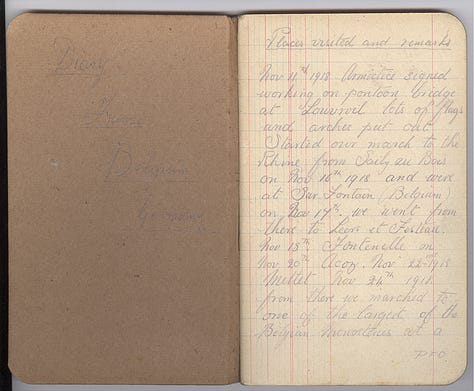 Diary
France
Belgium
Germany
Places visited and remarks
Nov 11th 1918 Armistice signed
working on pontoon bridge
at Louvroil lots of flags
and arches put out
Started our march to the
Rhine from Sailly au Bois
on Nov 16th 1918 and were
at Sar Fontain (Belgium)
on Nov 17th we went from
there to Leers et Fosteau
Nov 18th Fontenelle on
Nov 20th Acoz Nov 22nd 1918
Mettet Nov 24th 1918
from there we marched to
one of the largest of the
Belgian Monasteries at a
P.T.O.